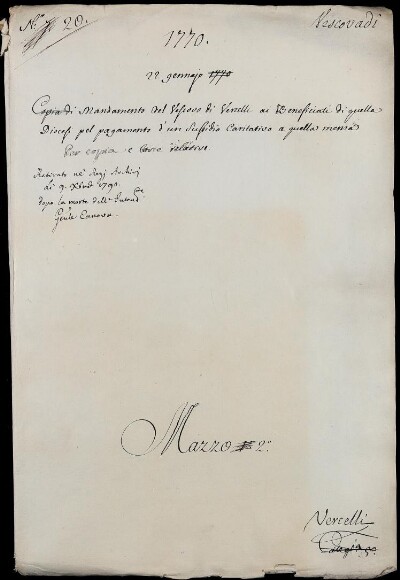 N.° 20.
Vescovadi
1770.
22 gennajo 1770
Copia di Mandamento del Vescovo di Vercelli ai Beneficiati di quella
Diocesi pel pagamento d'un Sussidio Caritativo a quella mensa
Per copia e
Ritirato ne' Regj Archivj
di 9. Xbre 1791.
dopo la morte dell' Intend.te
Gen.le Canova.
Mazzo 2.°
Vercelli